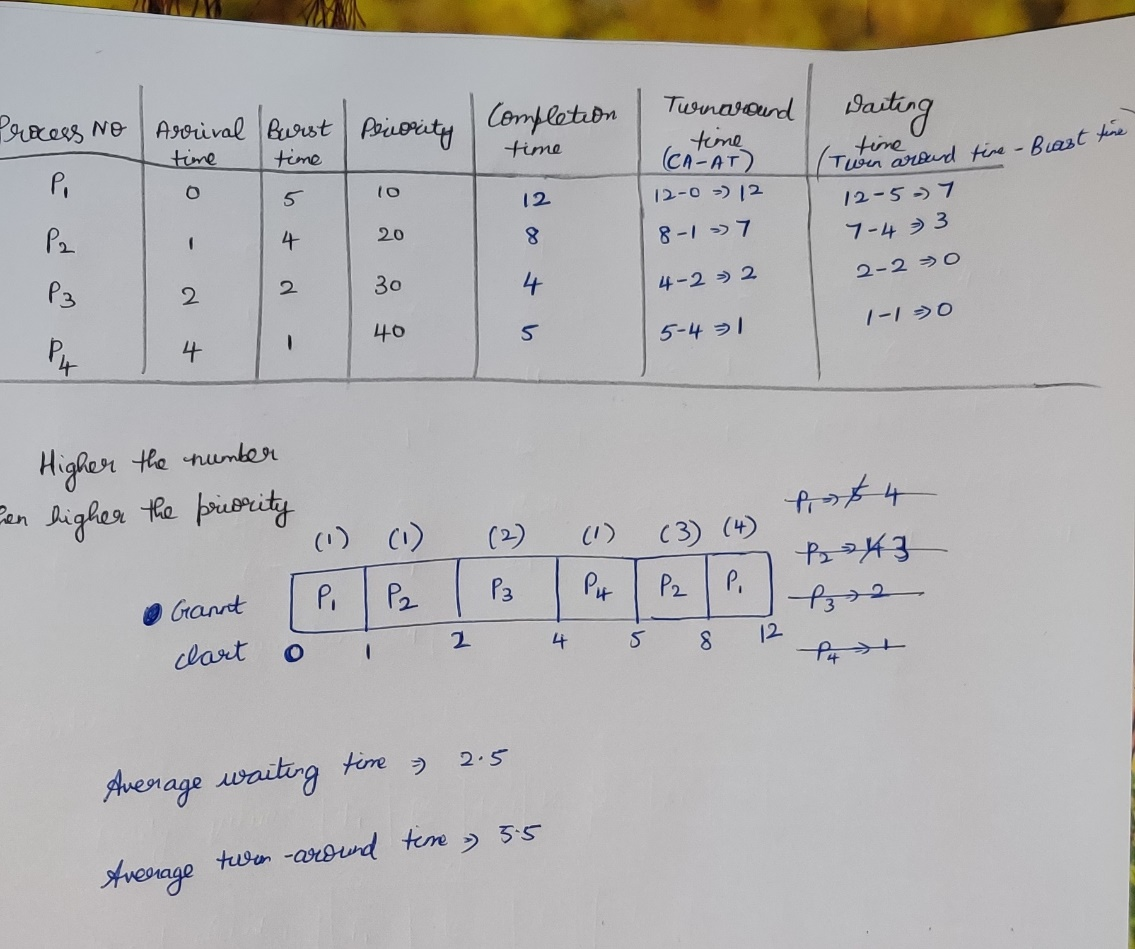 Process No Arrival time Burst time Priority Completion time Turnaround time (CA-AT) Waiting time (Turn around time - Burst time)
P1 0 5 10 12 12-0 => 12 12-5 => 7
P2 1 4 20 8 8-1 => 7 7-4 => 3
P3 2 2 30 4 4-2 => 2 2-2 => 0
P4 4 1 40 5 5-4 => 1 1-1 => 0
Higher the number
hen higher the priority
P1 => 5 4
P2 => 4 3
P3 => 2
P4 => 1
(1) (1) (2) (1) (3) (4)
Gannt P1 P2 P3 P4 P2 P1
chart 0 1 2 4 5 8 12
Average waiting time => 2.5
Average turn-around time => 5.5